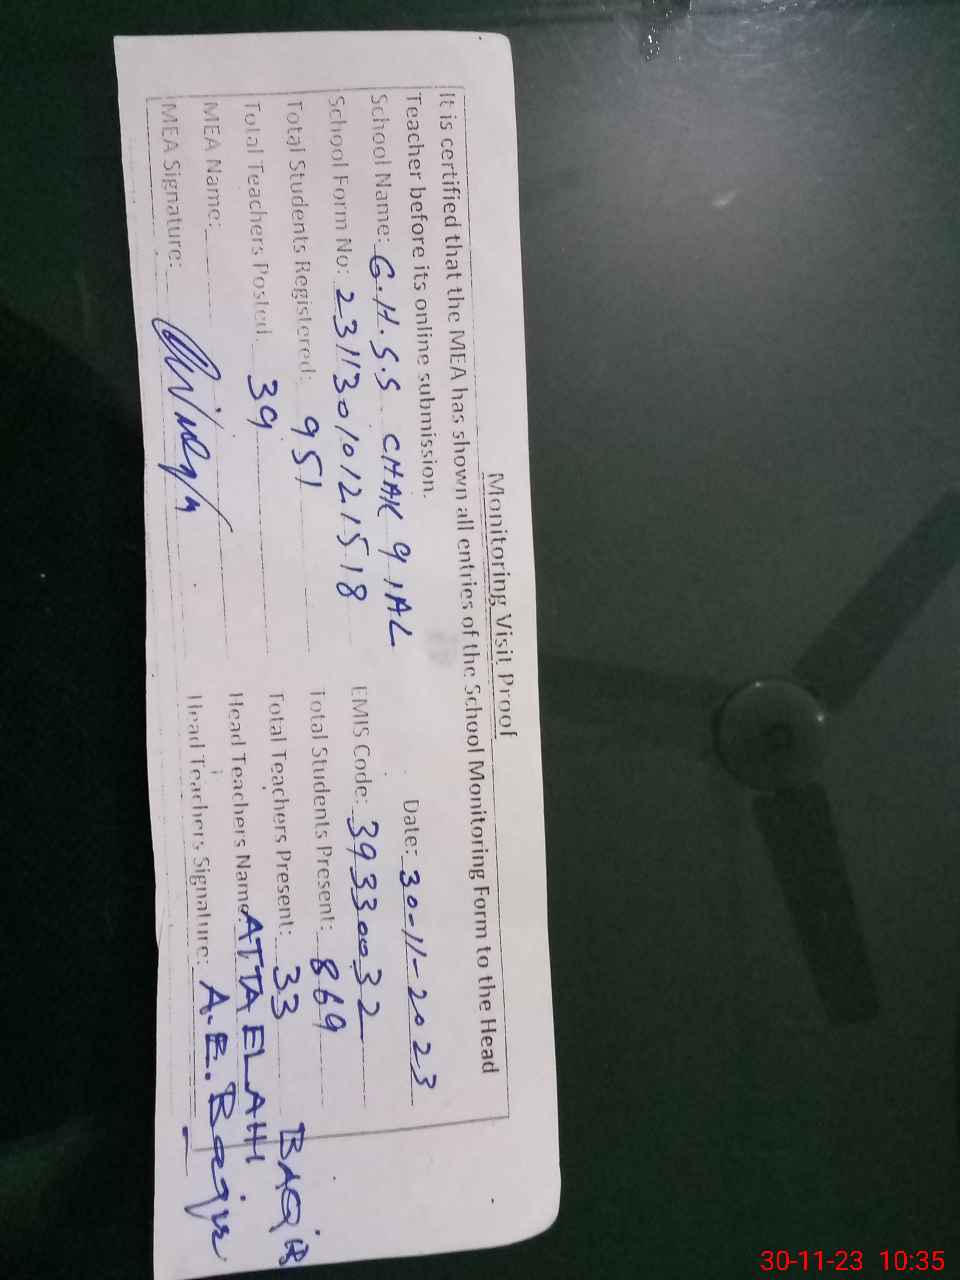 Monitoring Visit Proof
It is certified that the MEA has shown all entries of the School Monitoring Form to the Head
Teacher before its online submission.
Date: 30-11-2023
School Name: G.H.S.S CHAK 91AL
School Form No: 231130101211518 EMIS Code: 39330032
Total Students Registered: 951 Total Students Present: 869
Total Teachers Posted: 39 Total Teachers Present: 33
MEA Name: Head Teachers Name: ATTA ELAHI
MEA Signature: Head Teachers Signature: A.E.
30-11-23 10:35